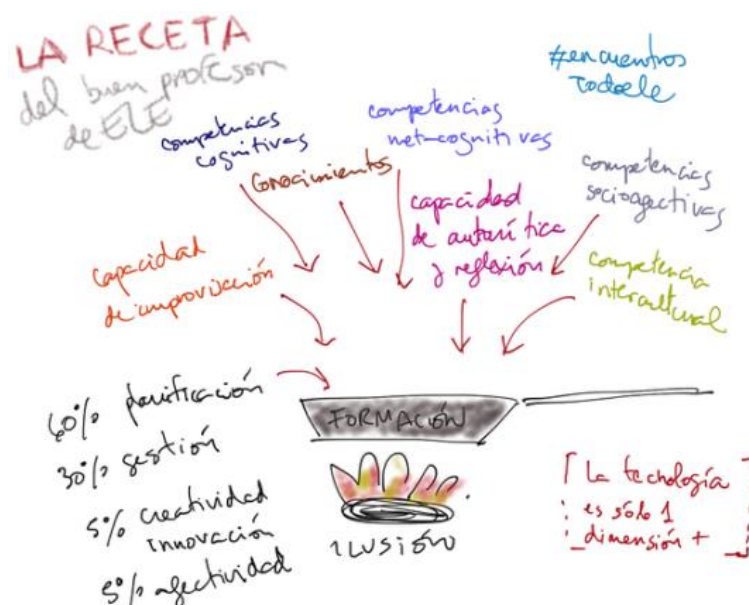 LA RECETA
del buen profesor
de ELE
#encuentros
todoele
competencias
cognitivas
Conocimientos
competencias
metacognitivas
competencias
socioafectivas
capacidad
de autocrítica
y reflexión
capacidad
de improvisación
competencia
intercultural
60% planificación
30% gestión
5% creatividad
innovación
5% afectividad
FORMACIÓN
ILUSIÓN
La tecnología
es sólo 1
dimensión +